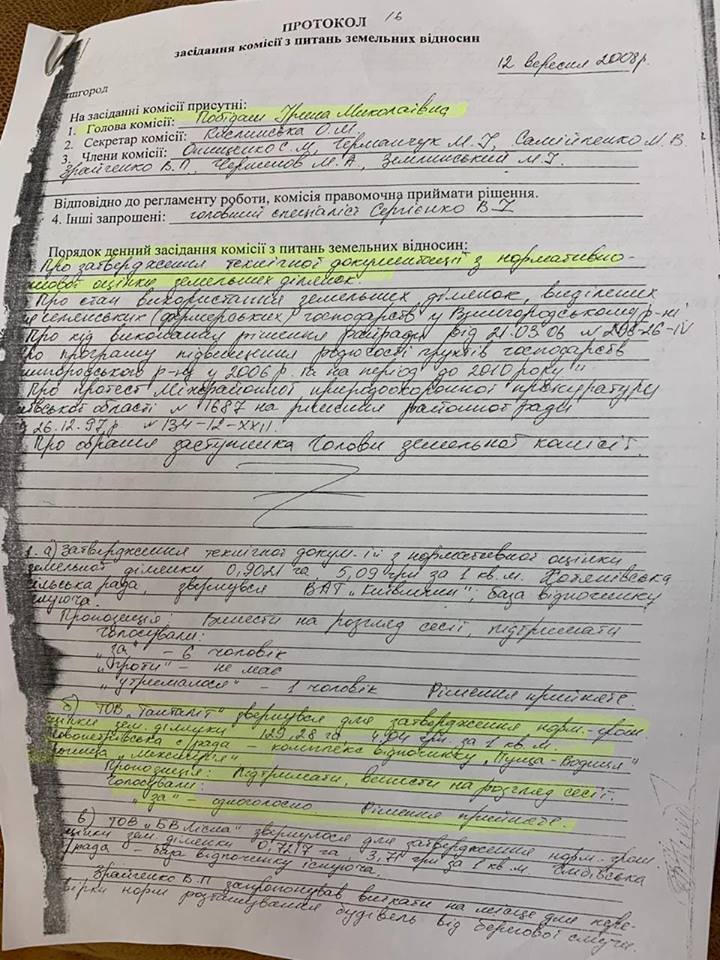 ПРОТОКОЛ 16
засідання комісії з питань земельних відносин
12 вересня 2008р.
ишгород
На засіданні комісії присутні:
1. Голова комісії: Побідаш Ірина Миколаївна
2. Секретар комісії: О.М.
3. Члени комісії: Онищенко С.М, Германчук М.І, Самійленко М.В.
Зрайченко В.П, М.А, Землинський М.І.
Відповідно до регламенту роботи, комісія правомочна приймати рішення.
4. Інші запрошені: головний спеціаліст Сергієнко В.І
Порядок денний засідання комісії з питань земельних відносин:
Про затвердження технічної документації з нормативно-
шової оцінки земельних ділянок.
Про стан використання земельних ділянок, виділених
селенських (фермерських) господарств у Вишгородському р-ні
Про хід виконання рішення райради від 21.03.06 № 298-26-IV
ро програму підвищення родючості ґрунтів господарств
шгородського р-ну у 2006 р. та на період до 2010 року"
Про протест Міжрайонної природоохоронної прокуратури
ївської області № 1687 на рішення районної ради
26.12.97р № 134-12-XXII.
Про обрання заступника голови земельної комісії.
1. а) Затвердження технічної докум-ії з нормативної оцінки
земельної ділянки 0,9021 га 5,09 грн за 1 кв.м. Хотянівська
сільська рада, звернувся ВАТ „Київлияни", база відпочинку
існуюча.
Пропозиція: Винести на розгляд сесії, підтримати
Голосували:
„за" – 6 чоловік
„проти" – не має
„утрималося" – 1 чоловік Рішення прийняте.
б) ТОВ „Танталіт" звернувся для затвердження норм.-грош
оцінки зем ділянки 129,28 га 4,04 грн за 1 кв м.
Новопетрівська с/рада – комплекс відпочинку „Пуща-Водиця"
„Межигір'я"
Пропозиція: Підтримати, винести на розгляд сесії.
Голосували:
„за" – одноголосно. Рішення прийняте.
в) ТОВ „БВ Лісма" звернулося для затвердження норм.-грош
оцінки зем. ділянки 0,7217 га, 3,71 грн за 1 кв.м.
рада – база відпочинку існуюча.
Зрайченко В.П запропонував виїхати на місце для пере-
вірки норм розташування будівель від берегової смуги.